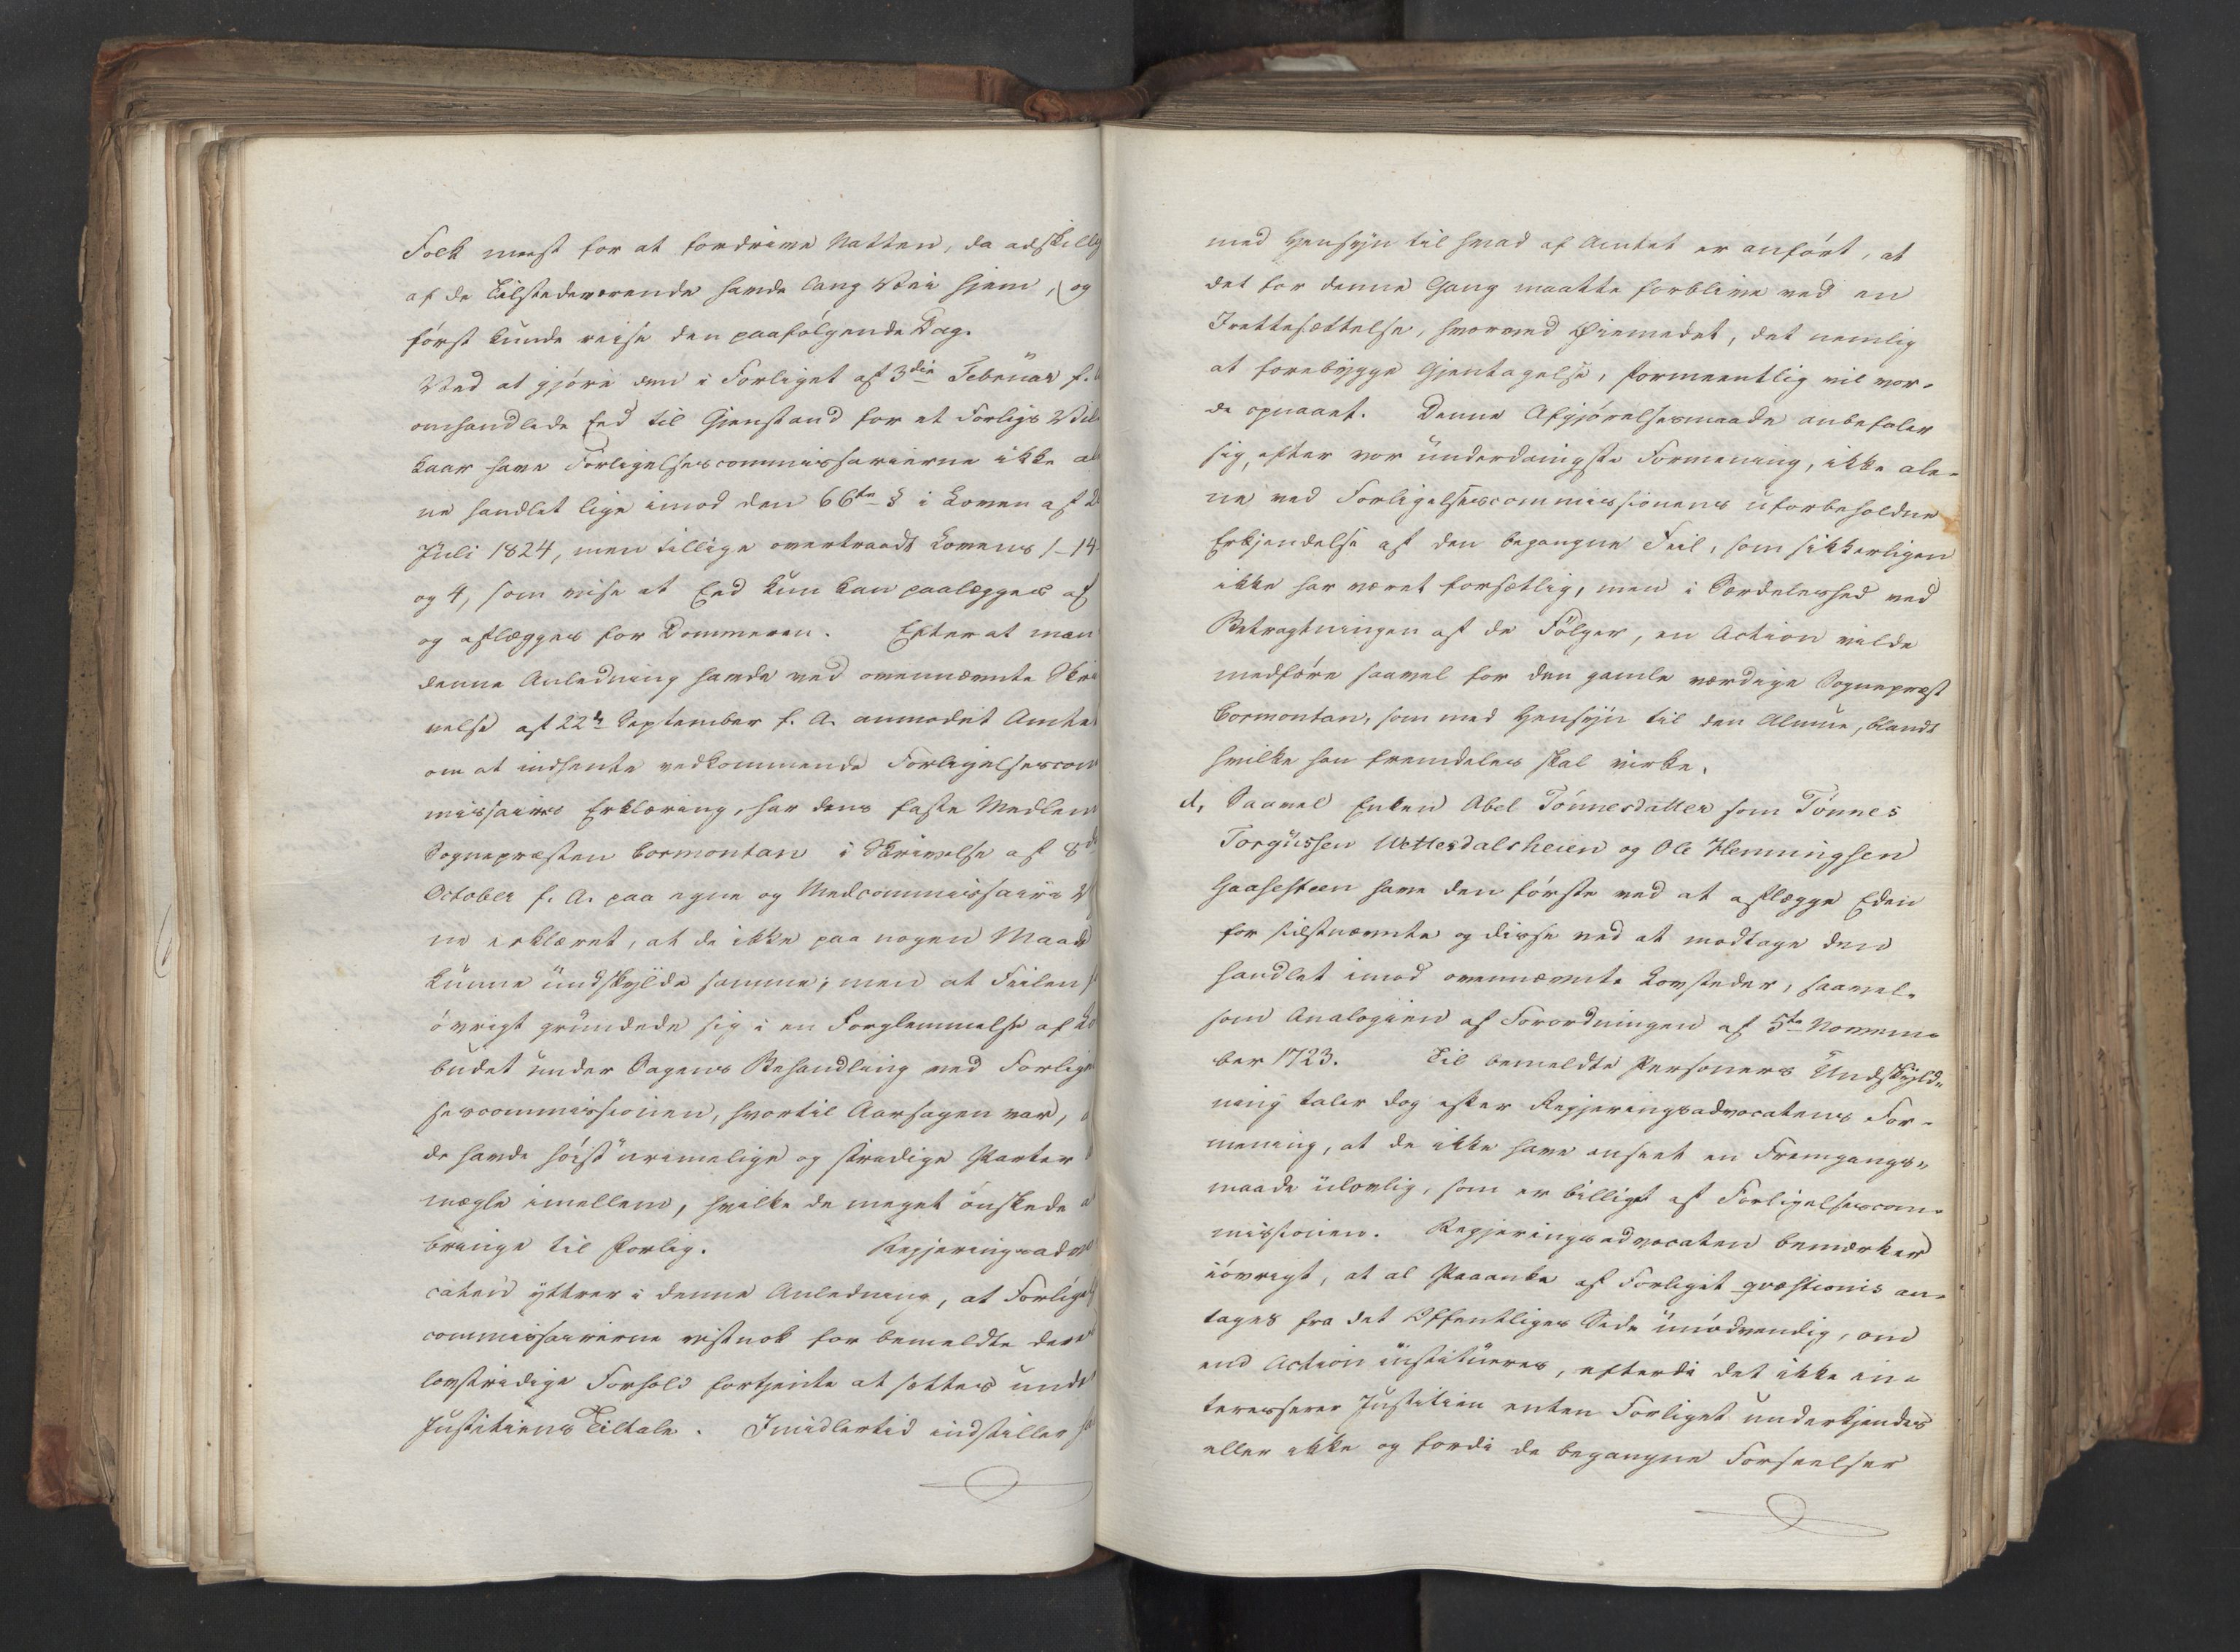 Folk meest for at fordrive Natten, da adskillig
af de Tilstedeværende havde lang Vei hjem, og
først kunde reise den paafølgende Dag.
Ved at gjøre den i Forliget af 3die Februar f.
omhandlede Eed til Gjenstand for et Forligs Vil
kaar have Forligelsescommissarierne ikke al
ne handlet lige imod den 66te § i Loven af 2
Juli 1824, men tillige overtraadt Lovens 1-14-
og 4, som vise at Eed kun kan paalægges af
og aflægges for Dommeren. Efterat man
denne Anledning havde ved ovennævnte Skri
velse af 22de September f. A. anmodet Amtet
om at indhente vedkommende Forligelsescom
missairs Erklæring, har dens faste Medlem
Sognepræsten Cormontan i Skrivelse af 8de
October f. A. paa egne og Medcommissairs V
ne erklæret, at de ikke paa nogen Maade
kunne undskylde samme; men at Feilen
øvrigt grundede sig i en Forglemmelse af Lo
budet under Sagens Behandling ved Forligel
sescommissionen, hvortil Aarsagen var, a
de havde høist urimelige og stridige Parter
mægle imellem, hvilke de meget ønskede a
bringe til Forlig. Regjeringsadvo
caten yttrer i denne Anledning, at Forligels
commissairerne vistnok for bemeldte deres
lovstridige Forhold fortjente at sættes under
Justitiens Tiltale. Imidlertid indstiller ha
med Hensyn til hvad af Amtet er anført, at
det for denne Gang maatte forblive ved en
Irettesættelse, hvorved Øiemedet, det nemlig
at forebygge Gjentagelse, formeentlig vil vor-
de opnaaet. Denne Afgjørelsesmaade anbefaler
sig, efter vor underdanigste Formening, ikke ale-
ne ved Forligelsescommissionens uforbeholdne
Erkjendelse af den begangne Feil, som sikkerligen
ikke har været forsætlig, men i Særdeleshed ved
Betragtningen af de Følger, en Action vilde
medføre saavel for den gamle værdige Sognepræst
Cormontan, som med Hensyn til den Almue, blandt
hvilke han fremdeles skal virke.
d, Saavel Enken Abel Tønnesdatter som Tønnes
Torgiussen Wettesdalsheien og Ole Henningsen
Gaasesteen have den første ved at aflægge Eden
for sidstnævnte og disse ved at modtage den
handlet imod ovennævnte Lovsteder, saavel-
som Analogien af Forordningen af 5te Novem-
ber 1723. Til bemeldte Personers Undskyld-
ning taler dog efter Regjeringsadvocatens For-
mening, at de ikke have anseet en Fremgangs-
maade ulovlig, som er billiget af Forligelsescom-
missionen. Regjeringsadvocaten bemærker
iøvrigt, at al Paaanke af Forliget qvæstionis an-
tages fra det Offentliges Side unødvendig, om
end Action institueres, efterdi det ikke in-
teresserer Justitien enten Forliget underkjendes
eller ikke og fordi de begangne Forseelser